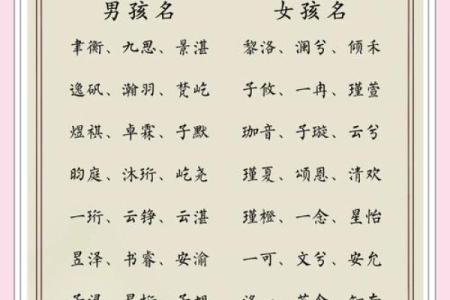 男孩名 女孩名
聿衡、九思、景湛 黎洛、澜兮、倾禾
逸矾、瀚羽、梵屹 子攸、一冉、瑾萱
煜祺、卓霖、子默 珈音、子璇、云兮
昀庭、沐珩、屹尧 瑾夏、颂恩、清欢
一珩、云铮、云湛 瑾橙、一念、星怡
昱泽、书睿、安渝 一可、文兮、安允